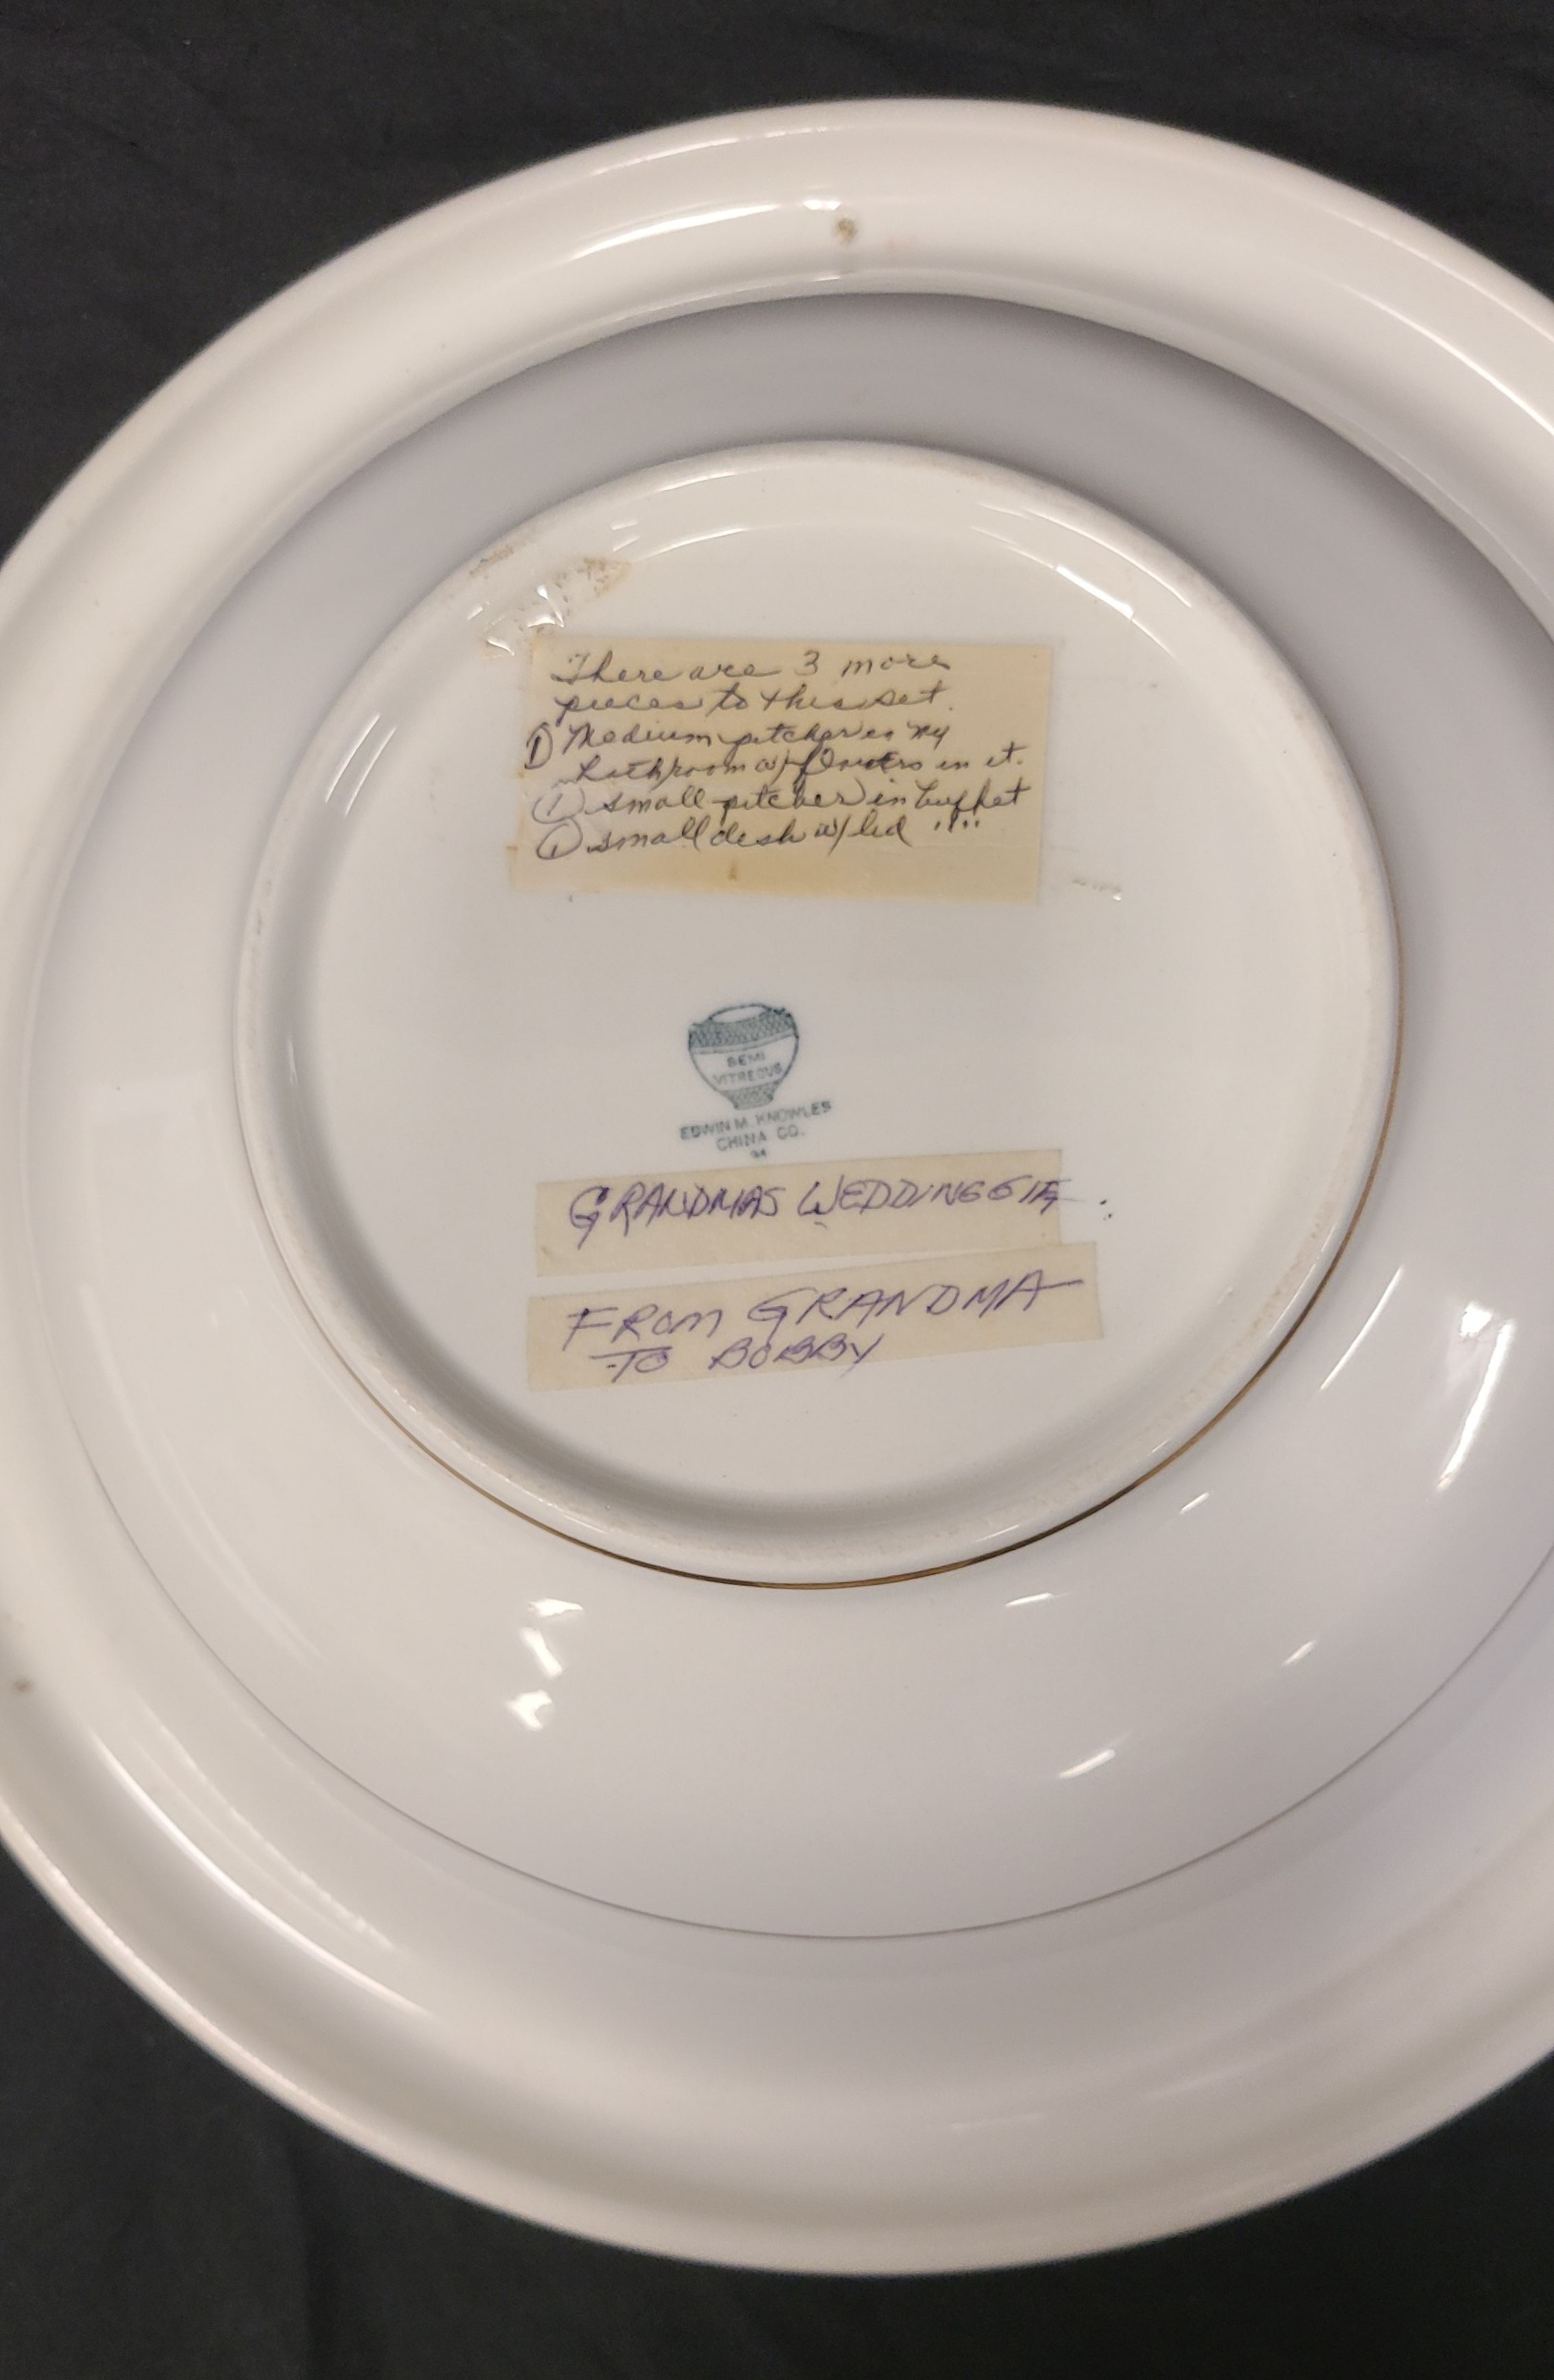 There are 3 more
pieces to this set.
① Medium pitcher in my
bathroom w/ flowers in it.
① small pitcher in buffet
① small dish w/ lid " "
SEMI
VITREOUS
EDWIN M. KNOWLES
CHINA CO.
GRANDMAS WEDDING GIFT
FROM GRANDMA
TO BOBBY